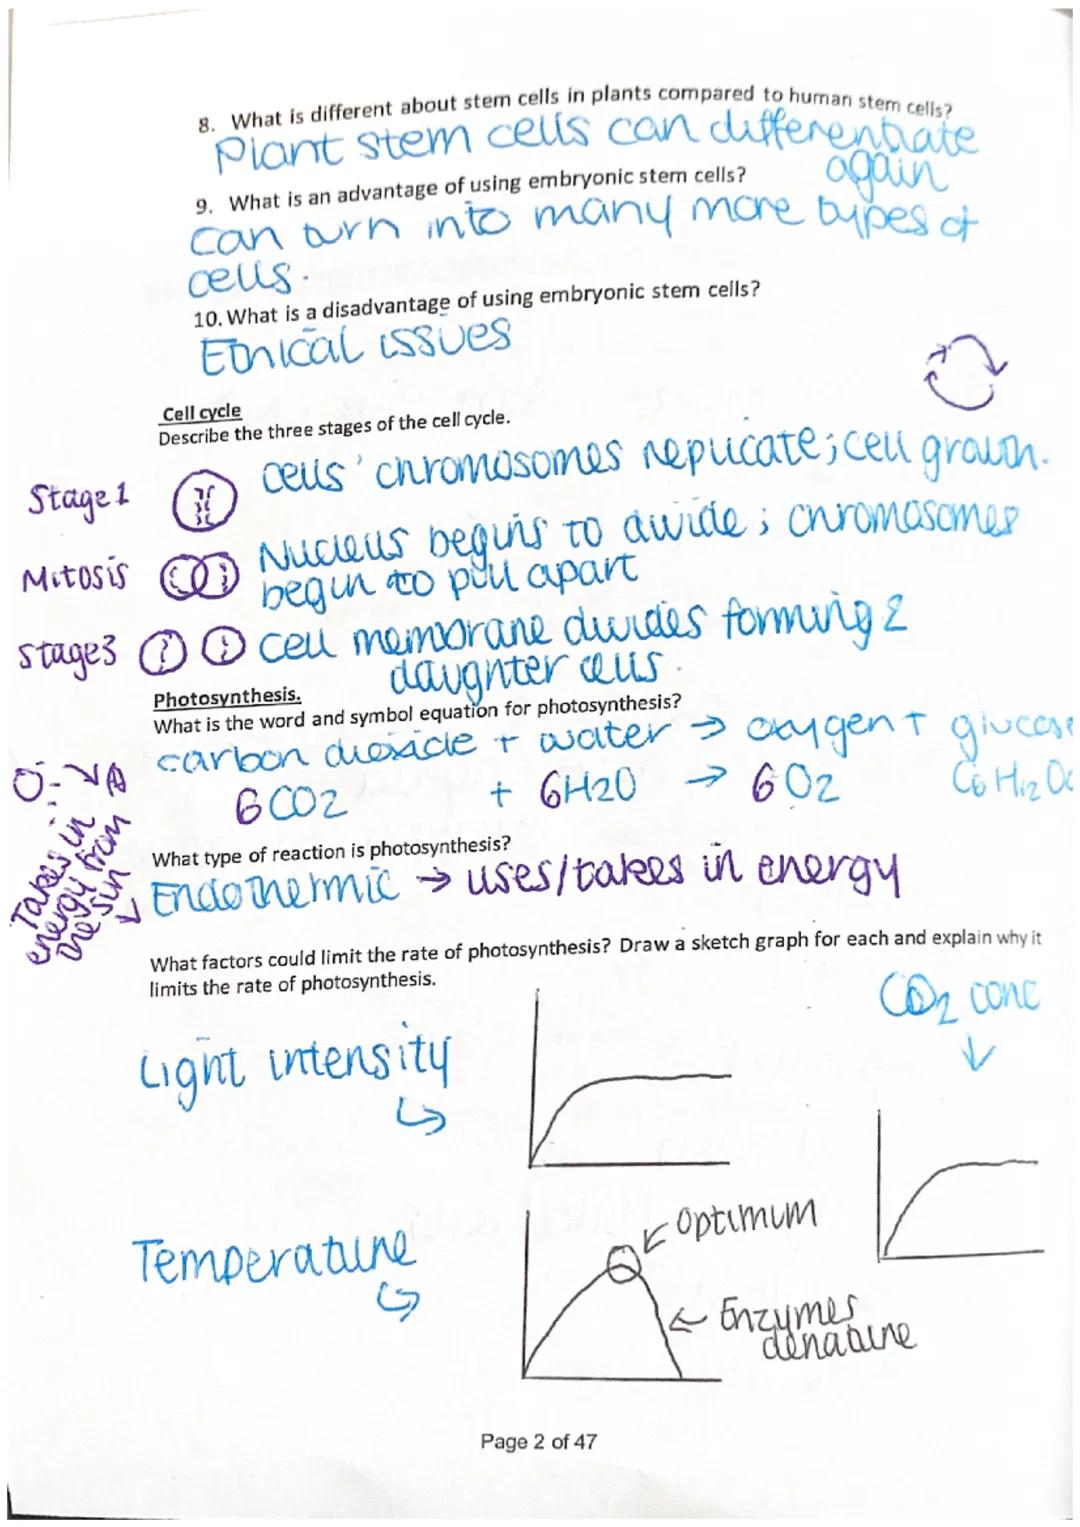 8. What is different about stem cells in plants compared to human stem cells?
Plant stem cells can differentiate
again
9. What is an advantage of using embryonic stem cells?
Can turn into many more types of
cells.
10. What is a disadvantage of using embryonic stem cells?
Ethical issues
Cell cycle
Describe the three stages of the cell cycle.
Stage 1 cells' chromosomes replicate; cell growth.
Mitosis Nucleus begins to divide; chromosomes
begin to pull apart
Stage 3 cell membrane divides forming 2
daughter cells.
Photosynthesis.
What is the word and symbol equation for photosynthesis?
carbon dioxide + water → oxygen + glucose
6CO2 + 6H2O → 6O2 C6H12O6
Takes in
energy from
the sun
What type of reaction is photosynthesis?
Endothermic → uses/takes in energy
What factors could limit the rate of photosynthesis? Draw a sketch graph for each and explain why it
limits the rate of photosynthesis.
CO2 conc
Light intensity
Optimum
Temperature
Enzymes
denature
Page 2 of 47